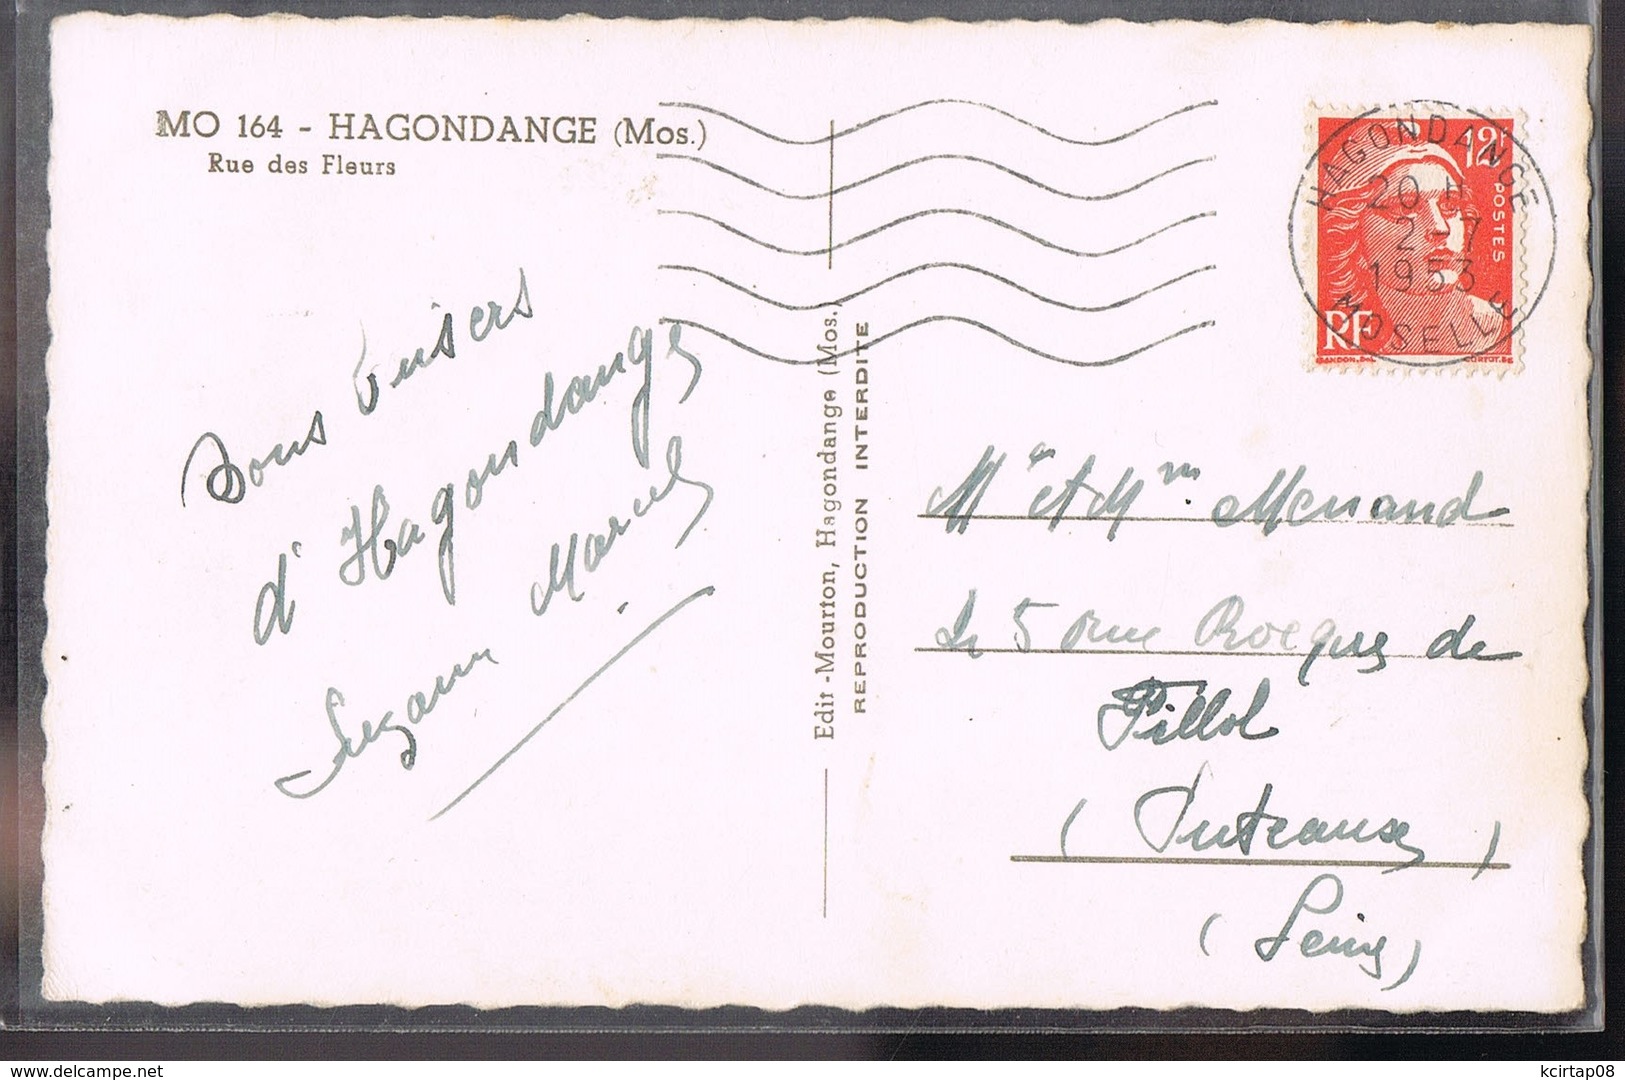 MO 164 - HAGONDANGE (Mos.)
Rue des Fleurs
Bons baisers
d'Hagondange
Suzanne Marcel
Edit-Mourton, Hagondange (Mos.)
REPRODUCTION INTERDITE
HAGONDANGE
20 H
2-7
1953
MOSELLE
12F
POSTES
RF
GANDON.DEL
CORTOT.SC
Mr et Mme Menand
5 rue Rocques de
Fillol
(Puteaux)
(Seine)
kcirtap08